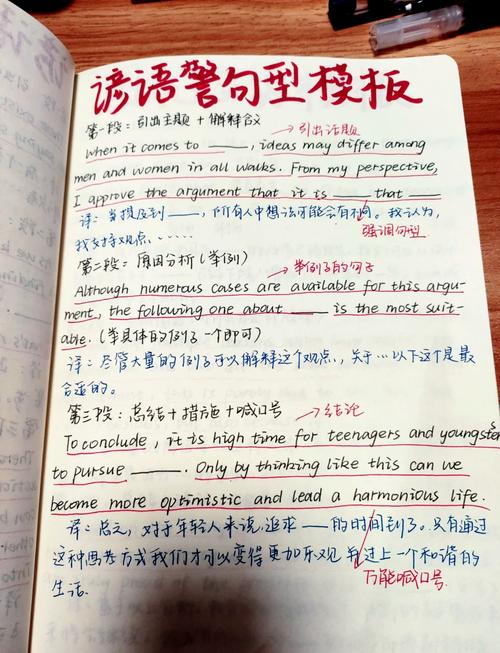 谚语警句型模板
第一段：引出主题+解释含义
→引出话题
When it comes to ____, ideas may differ among
men and women in all walks. From my perspective,
I approve the argument that it is ____ that ____
译：当提及到____，所有人中想法可能会有不同。我认为，
我支持观点......
强调句型
第二段：原因分析(举例)
→举例子的句子
Although numerous cases are available for this argu-
ment, the following one about ____ is the most suit-
able. (举具体的例子一个即可)
译：尽管大量的例子可以解释这个观点，关于...以下这个是最
合适的。
第三段：总结+措施+喊口号
→结论
To conclude, it is high time for teenagers and youngsters
to pursue ____. Only by thinking like this can we
become more optimistic and lead a harmonious life.
译：总之，对于年轻人来说，追求____的时间到了。只有通过
这种思考方式我们才可以变得更加乐观并过上一个和谐的
生活.
万能喊口号